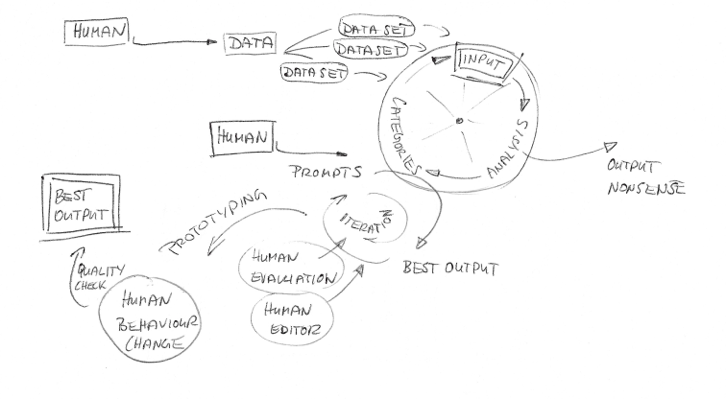 HUMAN
DATA
DATA SET
DATASET
DATASET
INPUT
ANALYSIS
CATEGORIES
OUTPUT
NONSENSE
HUMAN
PROMPTS
ITERATION
BEST OUTPUT
HUMAN
EVALUATION
HUMAN
EDITOR
PROTOTYPING
HUMAN
BEHAVIOUR
CHANGE
QUALITY
CHECK
BEST
OUTPUT